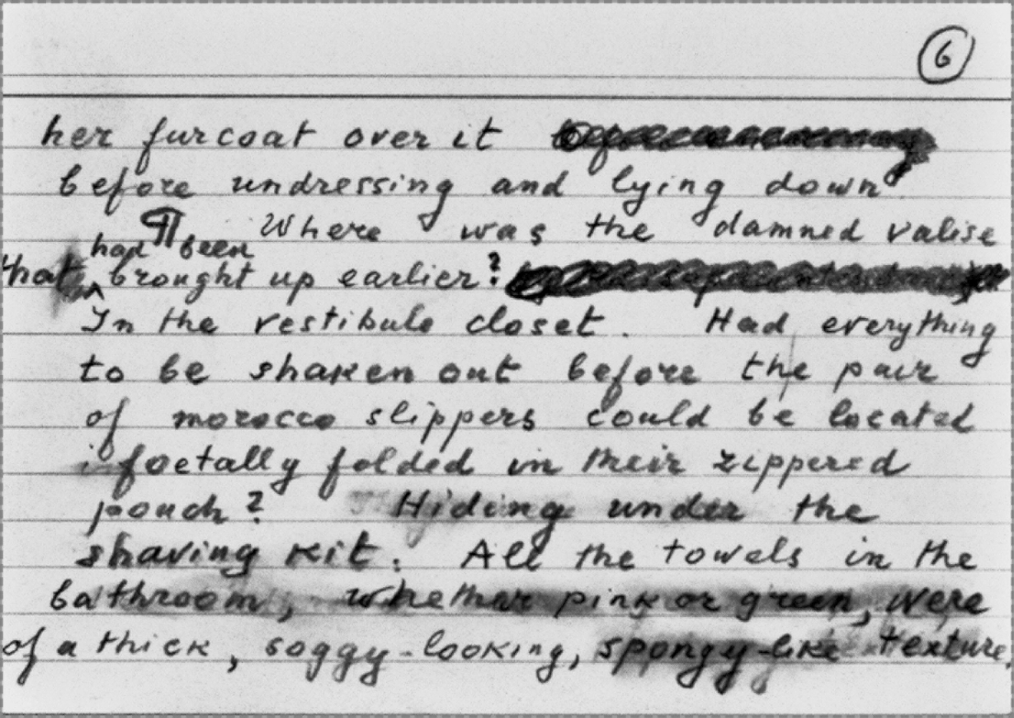 6
her furcoat over it
before undressing and lying down
¶ Where was the damned valise
had been
that brought up earlier?
In the vestibule closet. Had everything
to be shaken out before the pair
of morocco slippers could be located
foetally folded in their zippered
pouch? Hiding under the
shaving kit. All the towels in the
bathroom, whether pink or green, were
of a thick, soggy-looking, spongy-like texture.